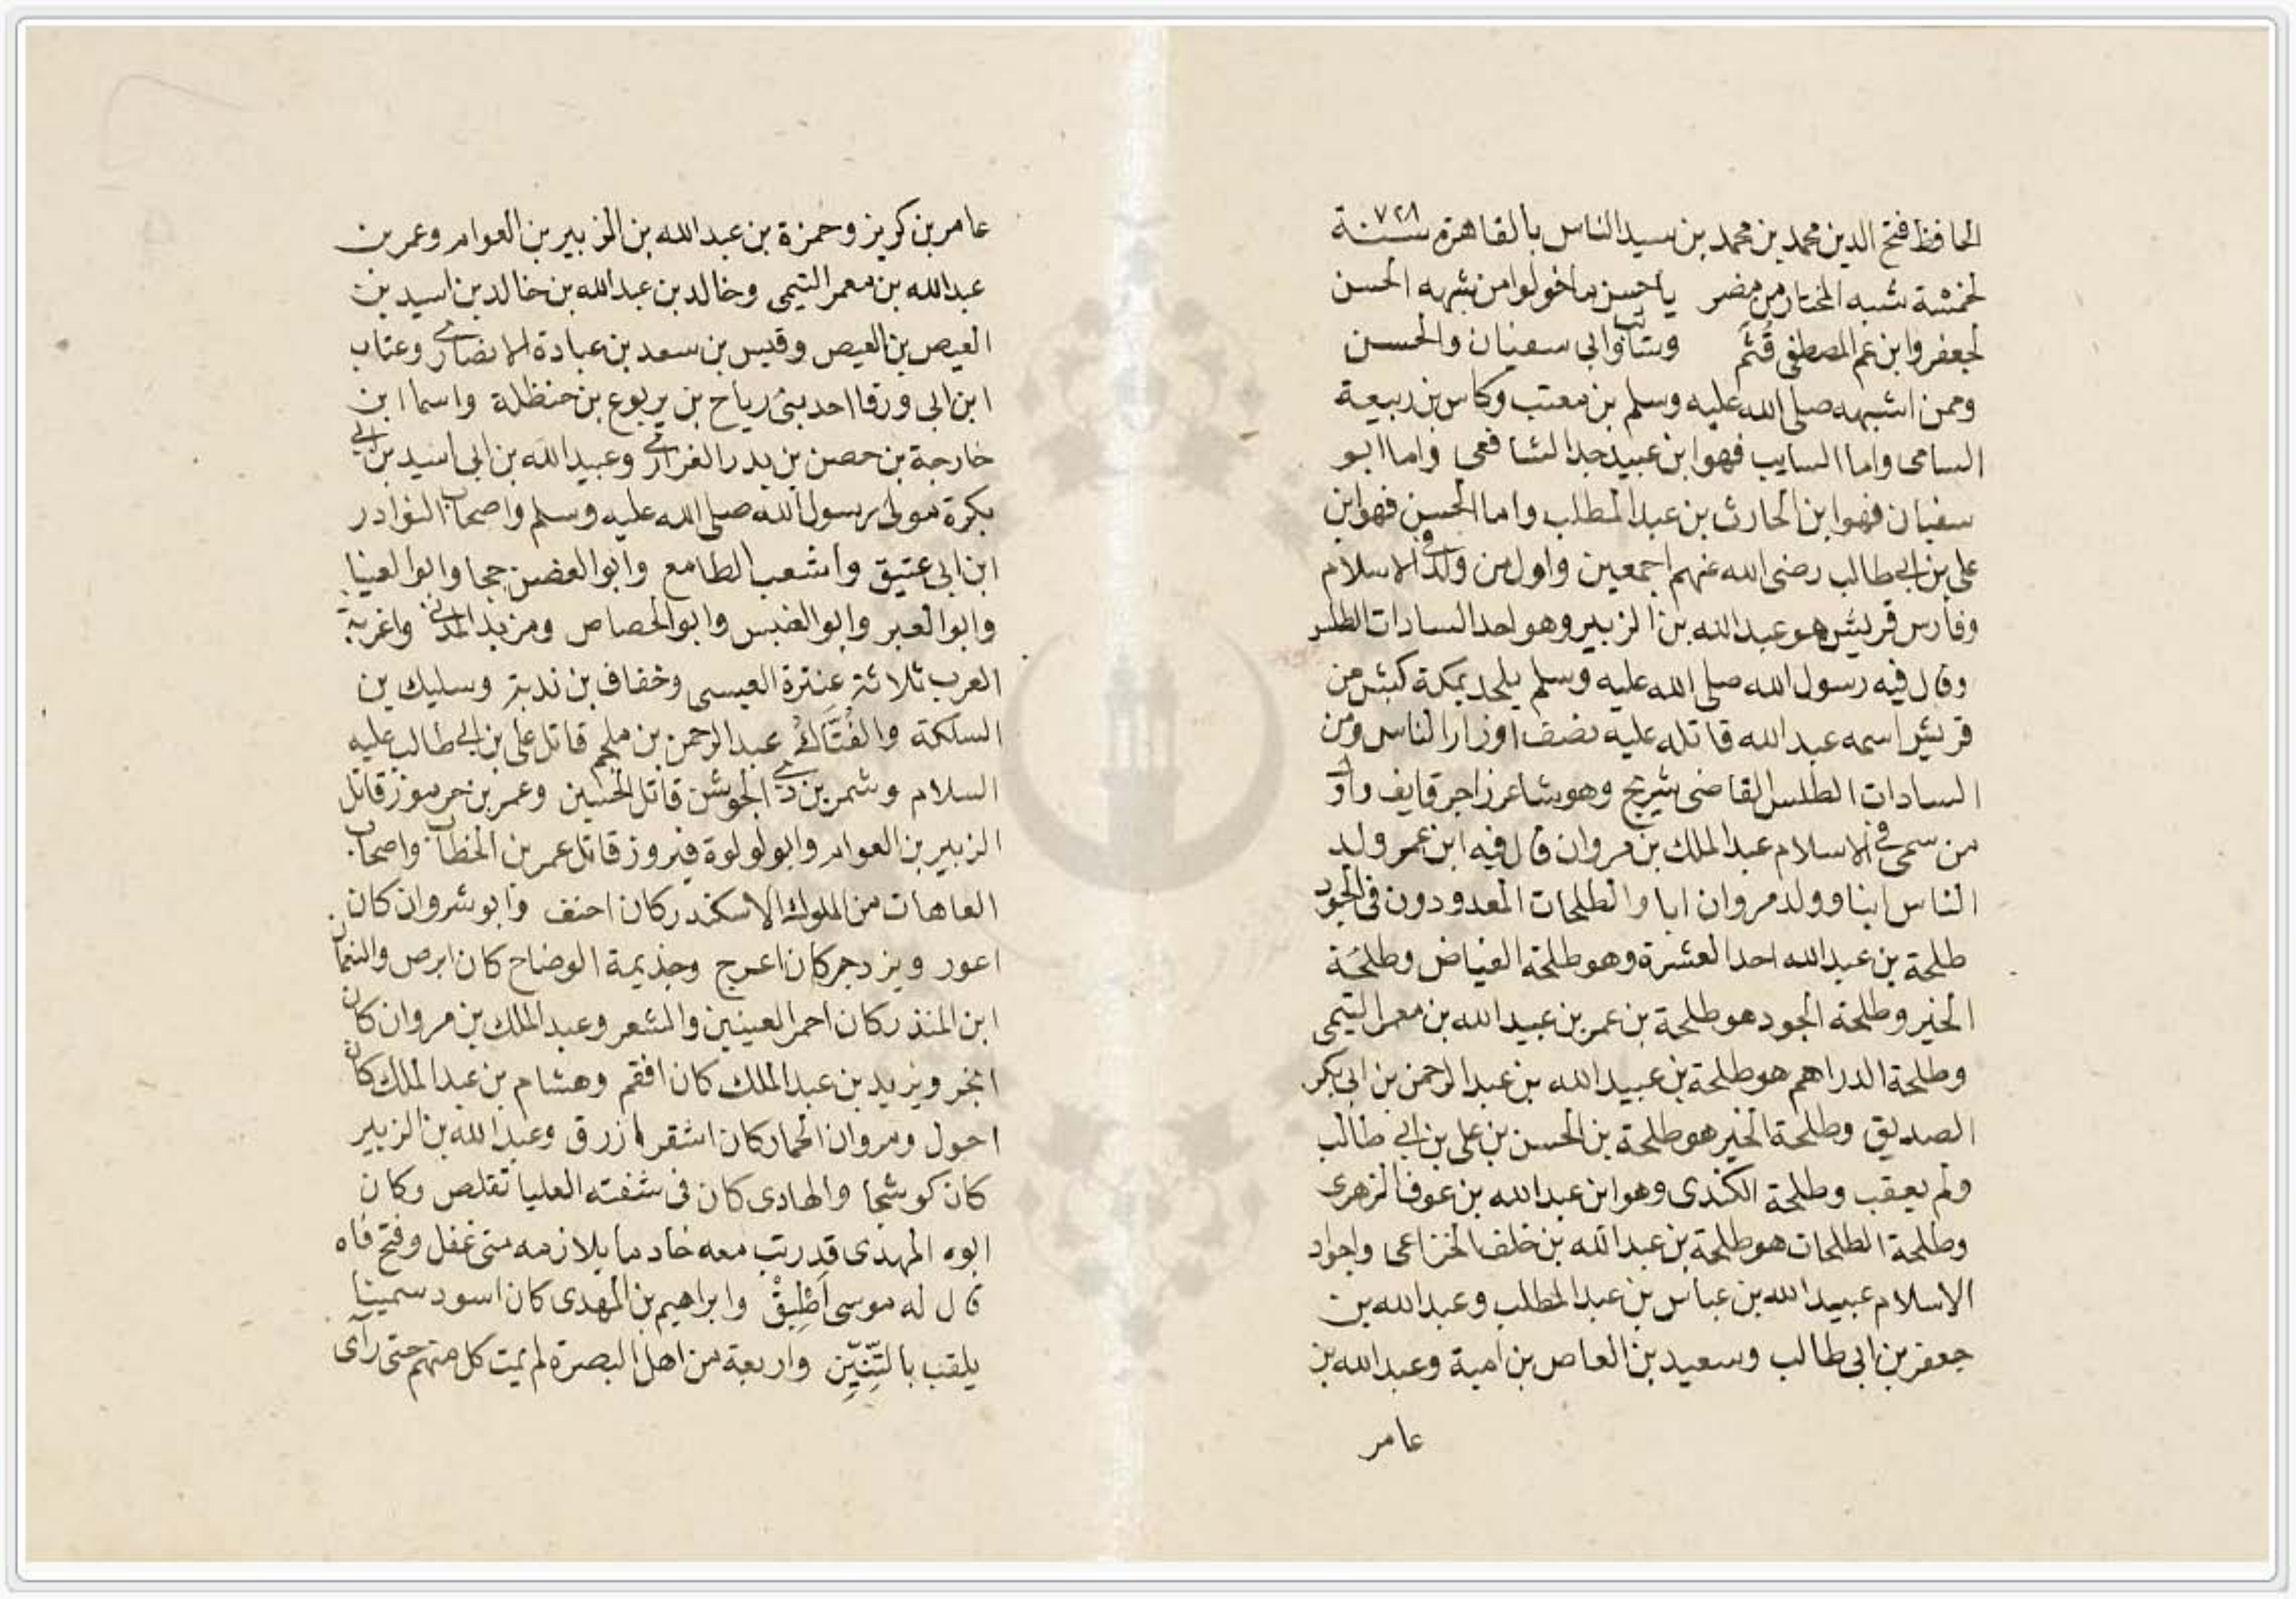 الحافظ فتح الدين محمد بن محمد بن سيد الناس بالقاهرة سنة ٧٢٨
لخمسة شبه المختار من مضر يا حسن ما خولوا من شبهه الحسن
لجعفر وابن عم المصطفى قُثَم وسائب وابى سفيان والحسن
وممن اشبهه صلى الله عليه وسلم بن معتب وكابس بن ربيعة
السامى واما السايب فهو ابن عبيد جد الشافعى واما ابو
سفيان فهو ابن الحارث بن عبد المطلب واما الحسن فهو ابن
على بن ابى طالب رضى الله عنهم اجمعين واول من ولد فى الاسلام
وفارس قريش هو عبد الله بن الزبير وهو احد السادات الطلس
وقال فيه رسول الله صلى الله عليه وسلم يلحد بمكة كبش من
قريش اسمه عبد الله قاتله عليه نصف اوزار الناس ومن
السادات الطلس القاضى شريح وهو شاعر زاجر قايف واول
من سمى فى الاسلام عبد الملك بن مروان قال فيه ابن عمر ولد
الناس ابنا وولد مروان ابا والطلحات المعدودون فى الجود
طلحة بن عبد الله احد العشرة وهو طلحة الفياض وطلحة
الخير وطلحة الجود هو طلحة بن عمر بن عبيد الله بن معمر التيمى
وطلحة الدراهم هو طلحة بن عبيد الله بن عبد الرحمن بن ابى بكر
الصديق وطلحة الخير هو طلحة بن الحسن بن على بن ابى طالب
ولم يعقب وطلحة الكندى وهو ابن عبد الله بن عوف الزهرى
وطلحة الطلحات هو طلحة بن عبد الله بن خلف الخزاعى واجواد
الاسلام عبيد الله بن عباس بن عبد المطلب وعبد الله بن
جعفر بن ابى طالب وسعيد بن العاص بن امية وعبد الله بن
عامر
عامر بن كريز وحمزة بن عبد الله بن الزبير بن العوام وعمر بن
عبد الله بن معمر التيمى وخالد بن عبد الله بن خالد بن اسيد بن
العيص بن العيص وقيس بن سعد بن عبادة الانصارى وعتاب
ابن ابى ورقا احد بنى رياح بن يربوع بن حنظلة واسما ابن
خارجة بن حصن بن بدر الفزارى وعبيد الله بن ابى اسيد بن ابى
بكرة مولى رسول الله صلى الله عليه وسلم واصحاب النوادر
ابن ابى عتيق واشعب الطامع وابو الغصن جحا وابو العينا
وابو العبر وابو العنبس وابو الحصاص ومزبد المدنى واغربة
العرب ثلاثة عنترة العبسى وخفاف بن ندبة وسليك بن
السلكة والفُتّاكُ عبد الرحمن بن ملجم قاتل على بن ابى طالب عليه
السلام وشمر بن ذى الجوشن قاتل الحسين وعمر بن جرموز قاتل
الزبير بن العوام وابو لولوة فيروز قاتل عمر بن الخطاب واصحاب
العاهات من الملوك الاسكندر كان احنف وانوشروان كان
اعور ويزدجر كان اعرج وجذيمة الوضاح كان ابرص والنعمان
ابن المنذر كان احمر العينين والشعر وعبد الملك بن مروان كان
ابخر ويزيد بن عبد الملك كان افقم وهشام بن عبد الملك كان
احول ومروان الحمار كان اشقر ازرق وعبد الله بن الزبير
كان كوسجا والهادى كان فى شفته العليا تقلص وكان
ابوه المهدى قد رتب معه خادما يلازمه متى غفل وفتح فاه
قال له موسى أَطْبِقْ وابراهيم بن المهدى كان اسود سمينا
يلقب بالتِّنِّين واربعة من اهل البصرة لم يمت كل منهم حتى رأى